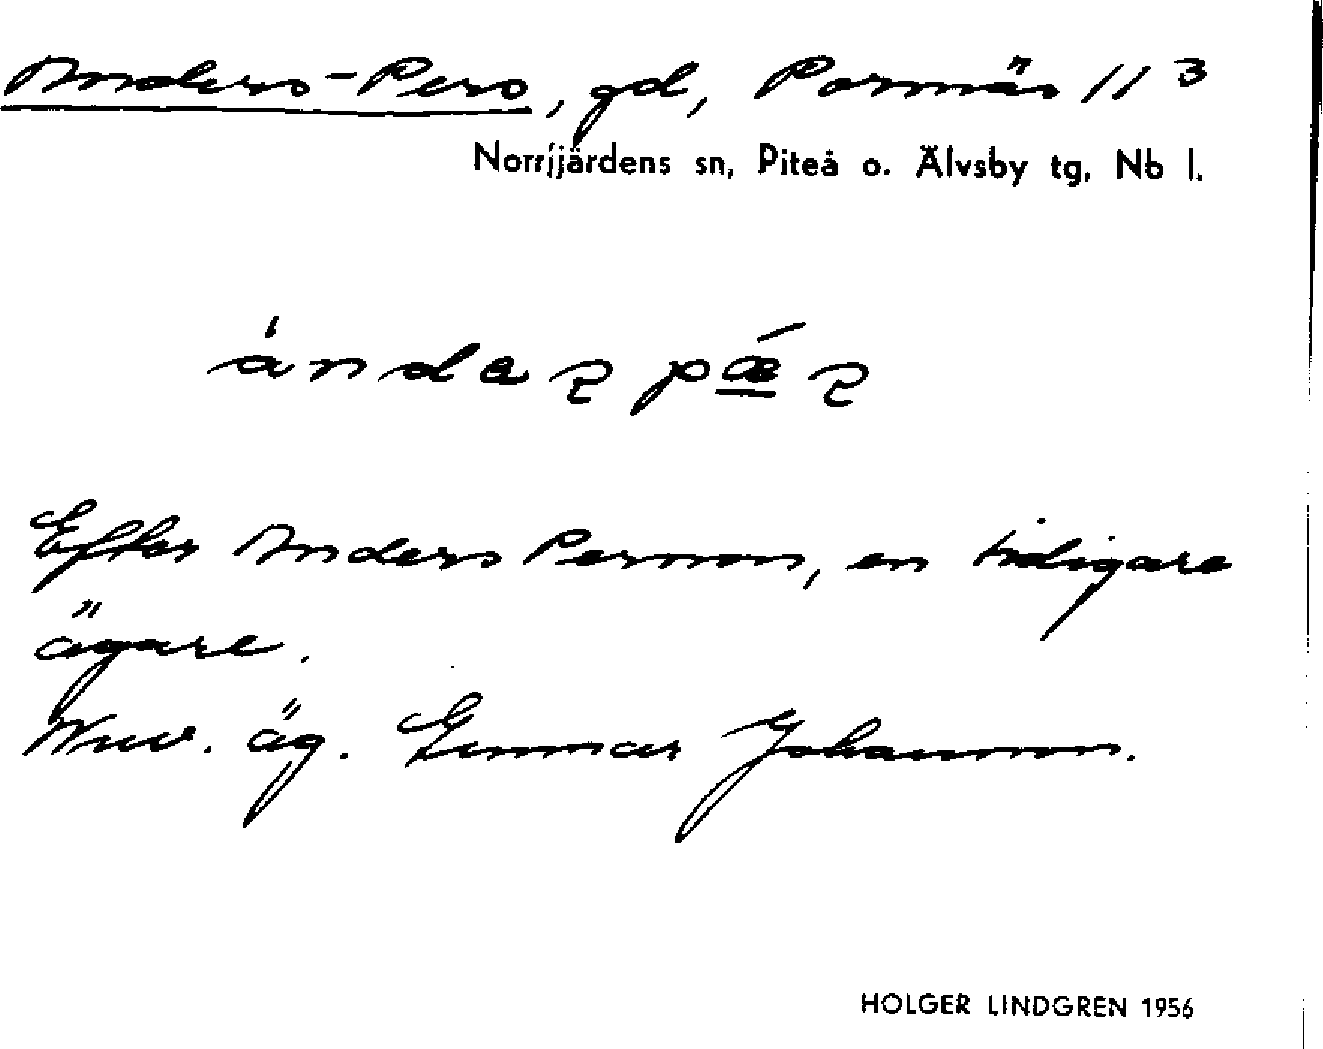 Anders-Pers, gd, Porsnäs 11 3
Norrfjärdens sn, Piteå o. Älvsby tg, Nb l.
Efter Anders Persson, en tidigare
ägare.
Nuv. äg. Gunnar Johansson.
HOLGER LINDGREN 1956